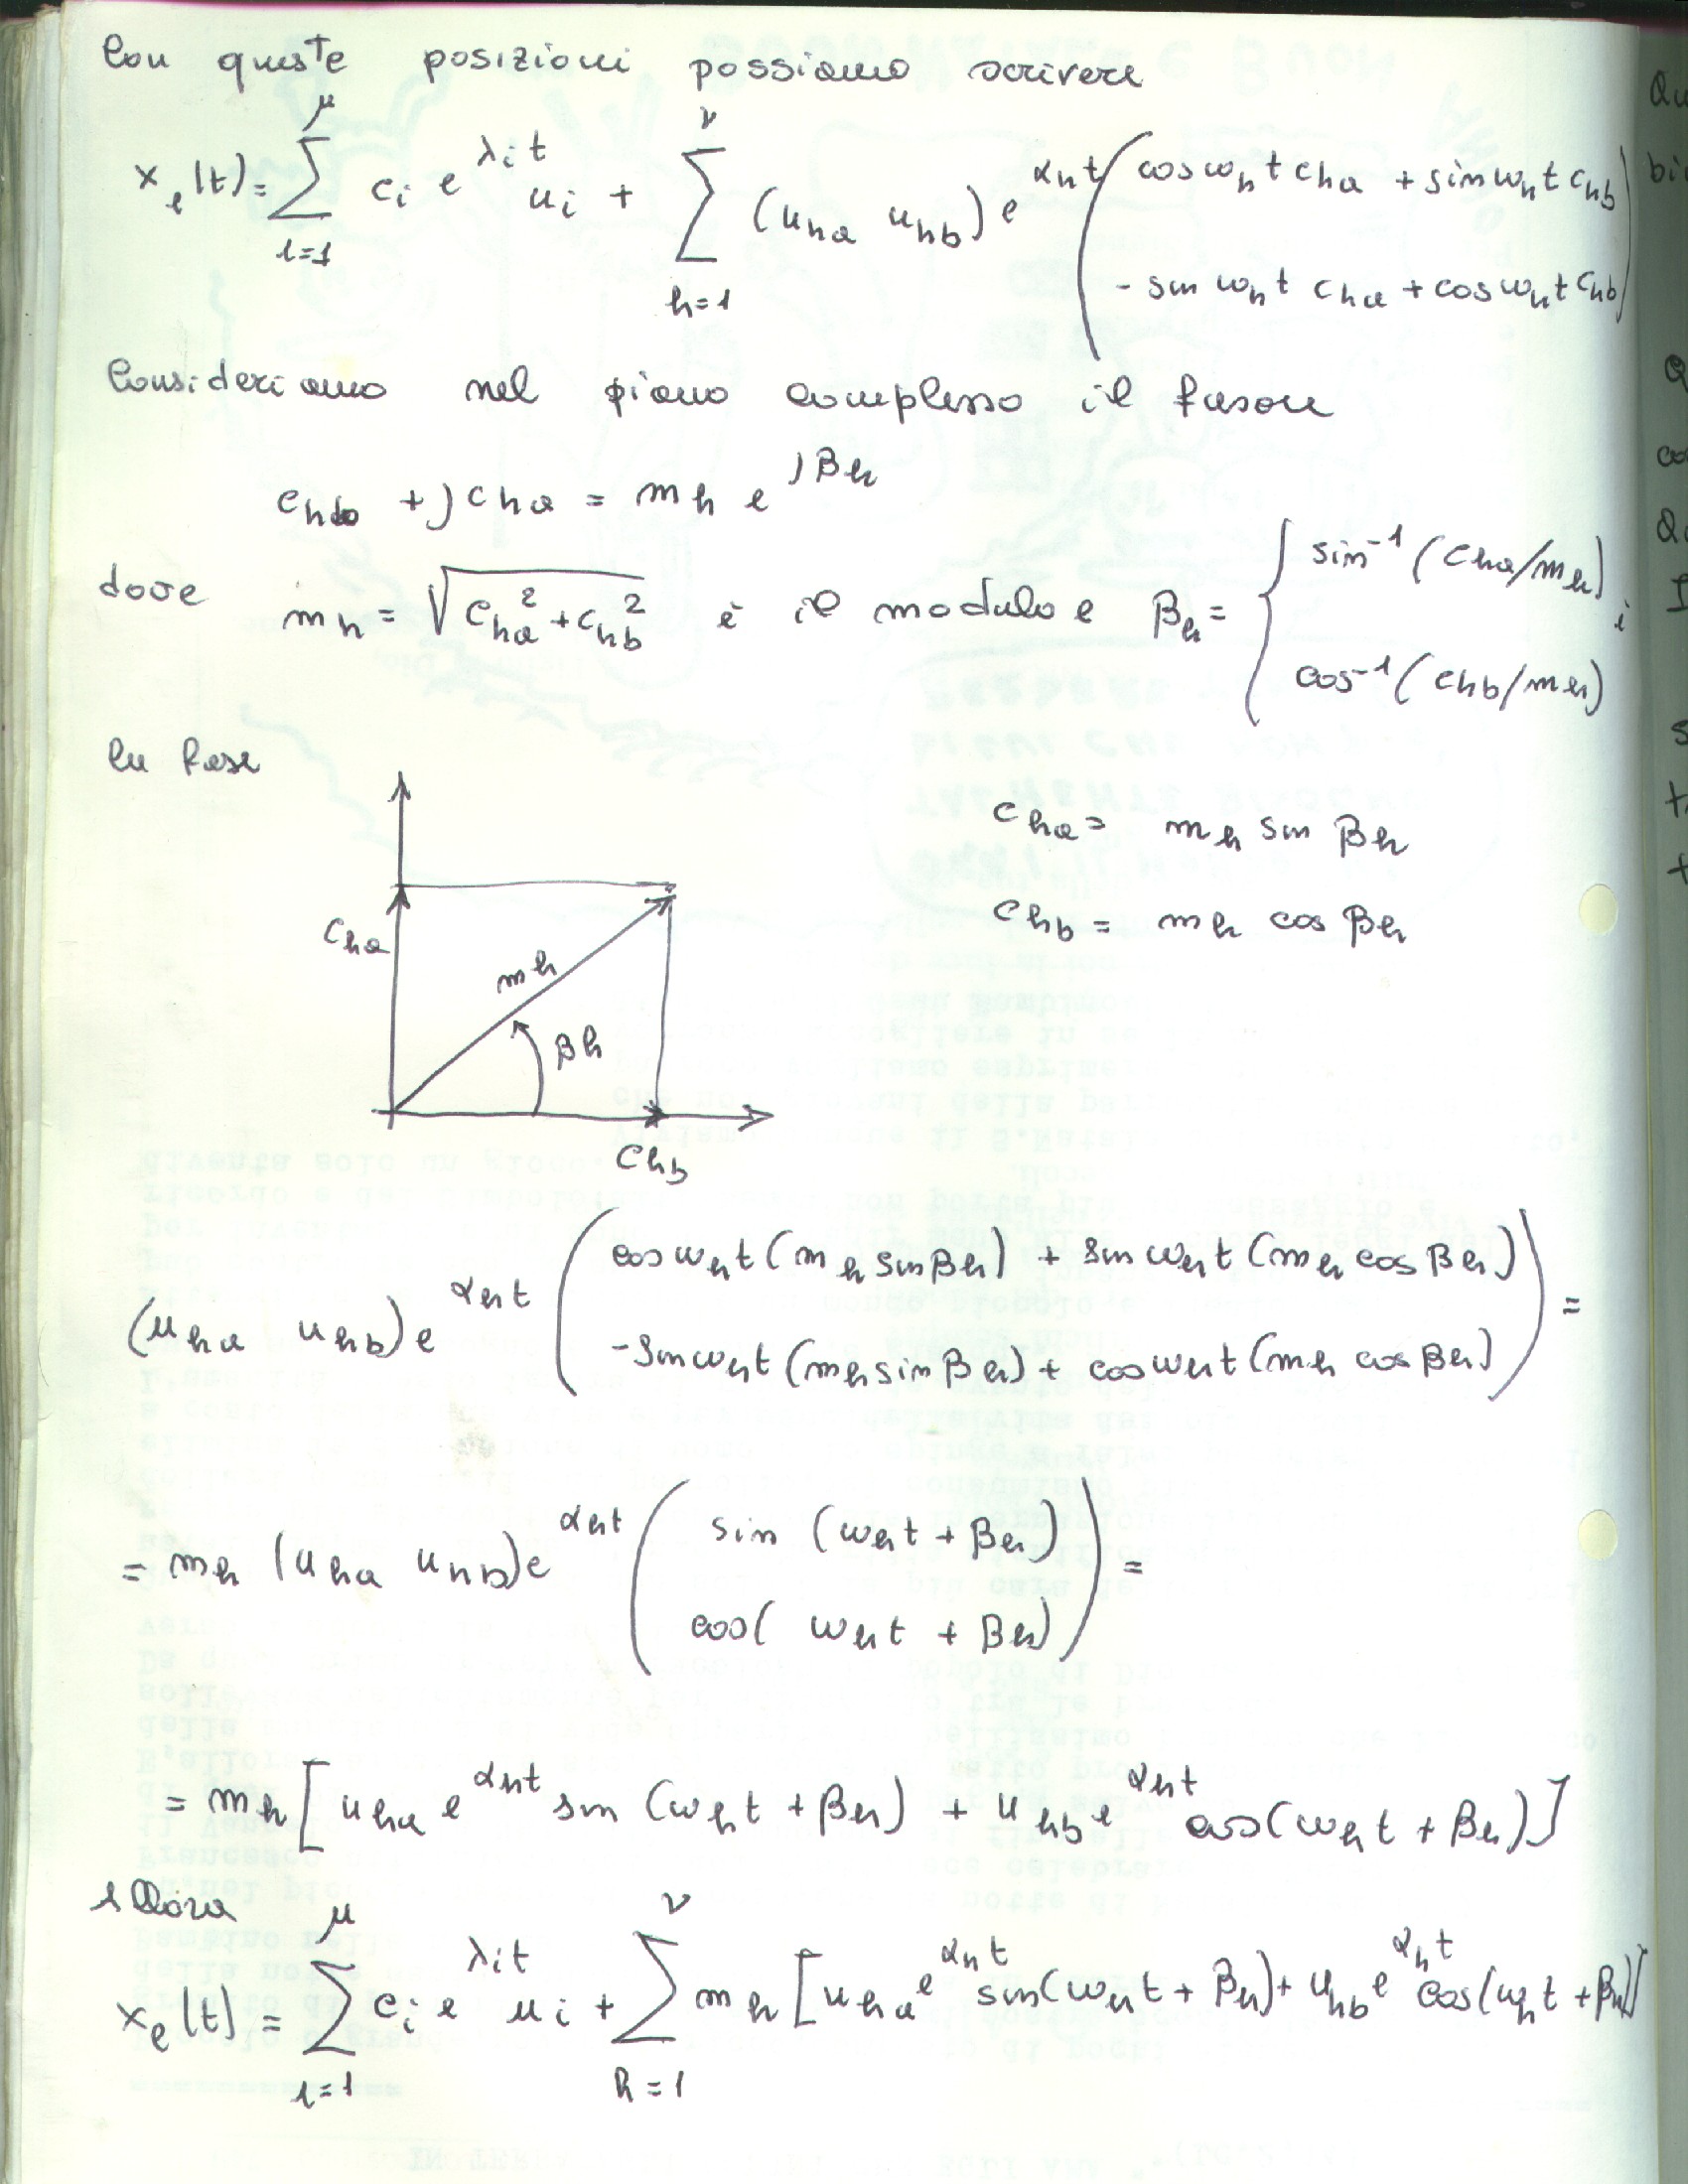 Con queste posizioni possiamo scrivere
x_e(t) = \sum_{i=1}^{μ} c_i e^{λ_i t} u_i + \sum_{h=1}^{ν} (u_{ha} u_{hb}) e^{α_h t} ( cos ω_h t c_{ha} + sin ω_h t c_{hb}
- sin ω_h t c_{ha} + cos ω_h t c_{hb} )
Consideriamo nel piano complesso il fasore
c_{hb} + j c_{ha} = m_h e^{jβ_h}
dove m_h = \sqrt{c_{ha}^2 + c_{hb}^2} è il modulo e β_h = { sin^{-1} (c_{ha}/m_h)
cos^{-1} (c_{hb}/m_h)
la fase
c_{ha} = m_h sin β_h
c_{hb} = m_h cos β_h
c_{ha}
m_h
β_h
c_{hb}
(u_{ha} u_{hb}) e^{α_h t} ( cos ω_h t (m_h sin β_h) + sin ω_h t (m_h cos β_h)
- sin ω_h t (m_h sin β_h) + cos ω_h t (m_h cos β_h) ) =
= m_h (u_{ha} u_{hb}) e^{α_h t} ( sin (ω_h t + β_h)
cos( ω_h t + β_h) ) =
= m_h [ u_{ha} e^{α_h t} sin (ω_h t + β_h) + u_{hb} e^{α_h t} cos(ω_h t + β_h) ]
allora
x_e(t) = \sum_{i=1}^{μ} c_i e^{λ_i t} u_i + \sum_{h=1}^{ν} m_h [ u_{ha} e^{α_h t} sin(ω_h t + β_h) + u_{hb} e^{α_h t} cos(ω_h t + β_h) ]